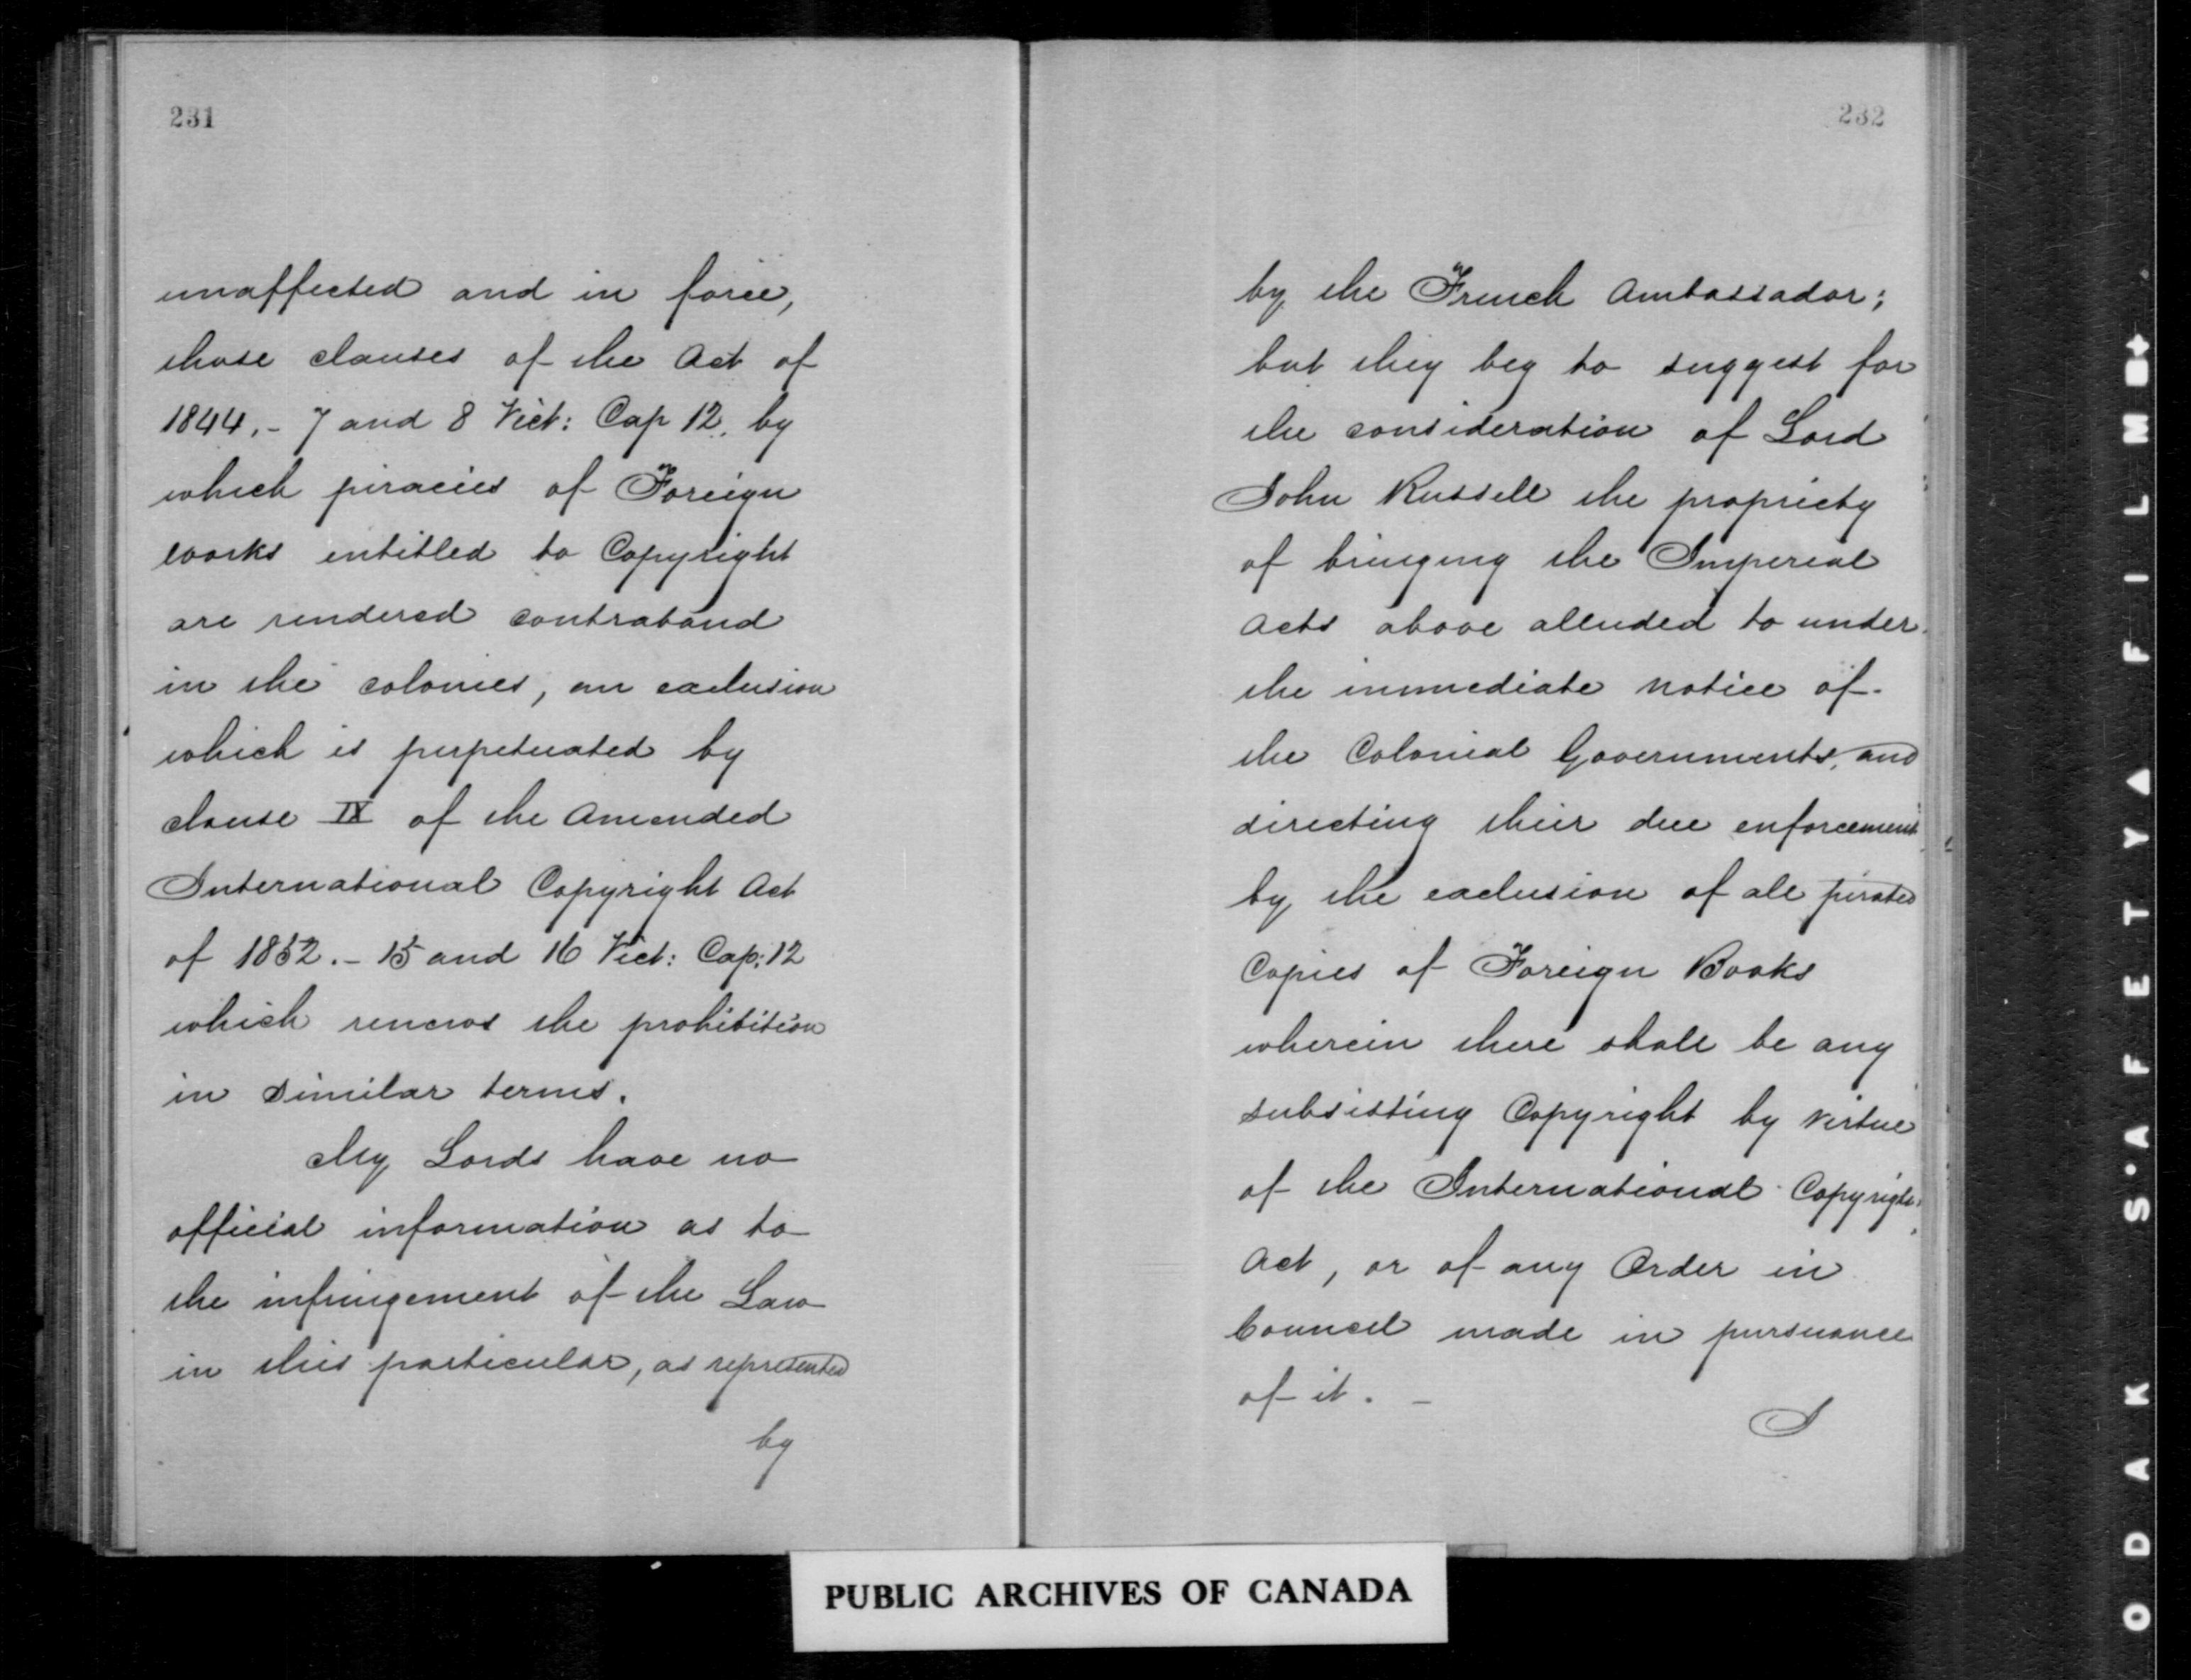 231
unaffected and in force,
those clauses of the Act of
1844.- 7 and 8 Vict: Cap 12. by
which piracies of Foreign
works entitled to Copyright
are rendered contraband
in the colonies, an exclusion
which is perpetuated by
clause IX of the Amended
International Copyright Act
of 1852.- 15 and 16 Vict: Cap: 12
which renews the prohibition
in similar terms.
My Lords have no
official information as to
the infringement of the Law
in this particular, as represented
by
232
by the French Ambassador;
but they beg to suggest for
the consideration of Lord
John Russell the propriety
of bringing the Imperial
Acts above alluded to under
the immediate notice of
the Colonial Governments, and
directing their due enforcement
by the exclusion of all pirated
Copies of Foreign Books
wherein there shall be any
subsisting Copyright by virtue
of the International Copyright
Act, or of any Order in
Council made in pursuance
of it. -
I
PUBLIC ARCHIVES OF CANADA
ODAK S'AFETY▲FILM